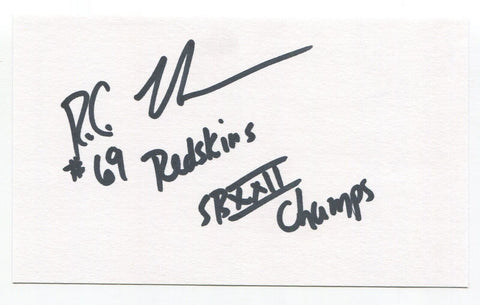 R.C.
#69 Redskins
SBXXII
Champs